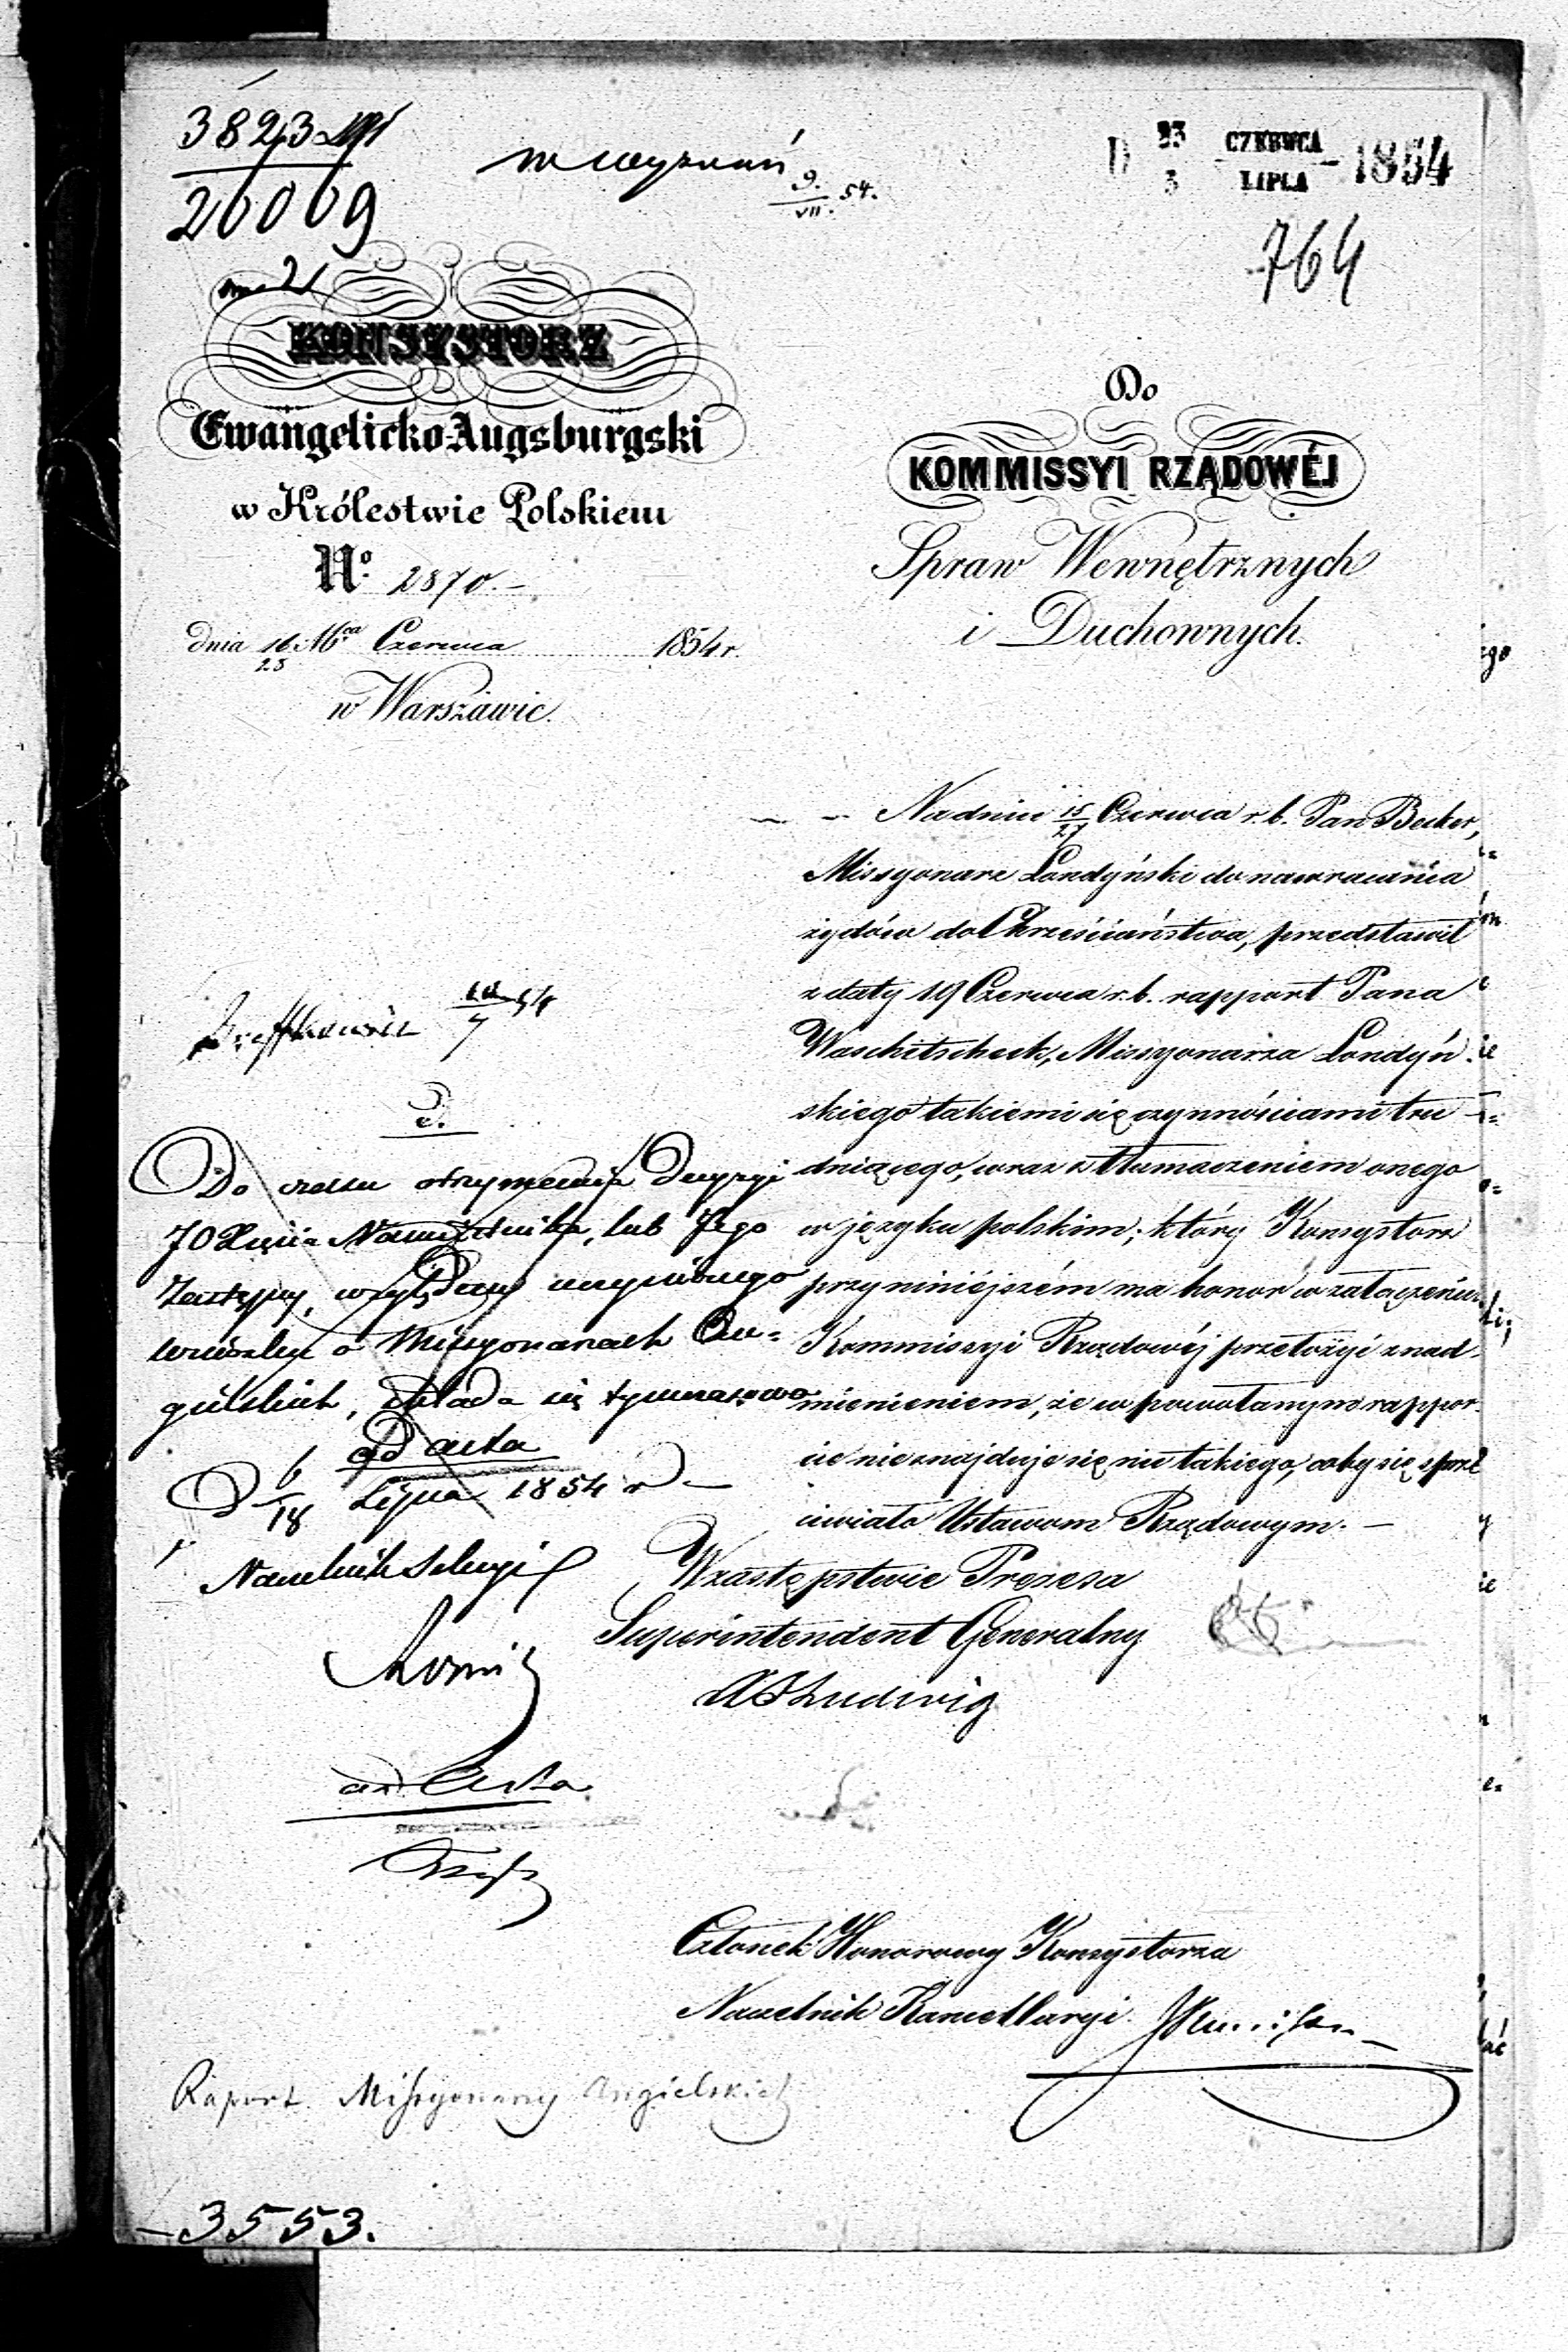 3823
20009
w wyznań 9./VII. 54.
D 23 CZERWCA / 3 LIPCA 1854
764
KONSYSTORZ
Ewangelicko-Augsburgski
w Królestwie Polskiem
No. 2870.-
dnia 16/28 Czerwca 1854 r.
w Warszawie.
Do
KOMMISSYI RZĄDOWÉJ
Spraw Wewnętrznych
i Duchownych.
Na dniu 15/27 Czerwca r. b. Pan Becker,
Missyonarz Londyński do nawracania
żydów do Chrześciaństwa, przedstawił
z daty 19 Czerwca r. b. rapport Pana
Waschitscheck, Missyonarza Londyń-
skiego takiemi się czynnościami tru-
dniącego, wraz z tłumaczeniem onego
w języku polskim; który Konsystorz
przy niniéjszém ma honor w załączeniu
Kommissyi Rządowéj przełożyć z nad-
mienieniem, że w powołanym rappor-
cie nie znajduje się nic takiego, coby się sprze
ciwiało Ustawom Rządowym. —
W zastępstwie Prezesa
Superintendent Generalny
Ludwig
10/7 54
Do czasu otrzymania Decyzyi
JO Xięcia Namiestnika, lub Jego
Zastępcy, względem uczynionego
wniosku o Missyonarzach An=
gielskich, składa się tymczasowo
ad acta
D 6/18 Lipca 1854 r
Naczelnik Sekcyi
ad Acta
Członek Honorowy Konsystorza
Naczelnik Kancellaryi.
Raport Missyonarzy Angielskich
3553.